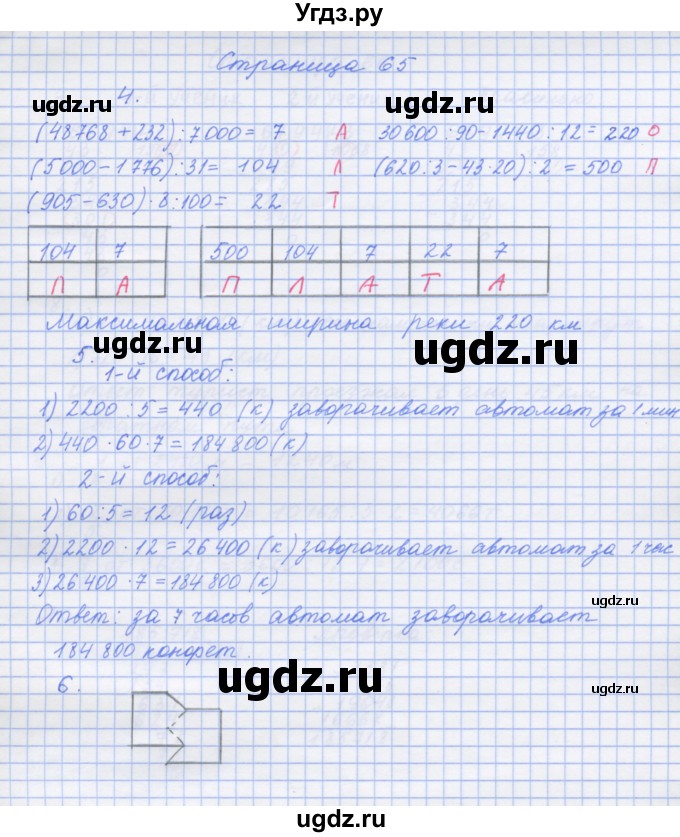 Угдз.ру
Страница 65
4.
(48768+232):7000= 7 А 30600:90-1440:12=220 О
(5000-1776):31= 104 Л (620:3-43·20):2=500 П
(905-630)·8:100= 22 Т
104 7 500 104 7 22 7
Л А П Л А Т А
Максимальная ширина реки 220 км
5.
1-й способ:
1) 2200:5=440 (к) заворачивает автомат за 1 мин
2) 440·60·7=184800(к)
2-й способ:
1) 60:5=12 (раз)
2) 2200·12=26400 (к) заворачивает автомат за 1 час
3) 26400·7=184800 (к)
Ответ: за 7 часов автомат заворачивает
184800 конфет.
6.
ugdz.ru
ugdz.ru
ugdz.ru
ugdz.ru
ugdz.ru
ugdz.ru
ugdz.ru
ugdz.ru
ugdz.ru
ugdz.ru
ugdz.ru
ugdz.ru
ugdz.ru